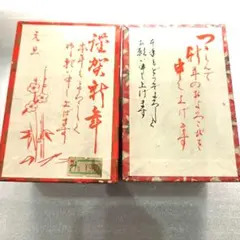 謹賀新年
本年もよろしく
願い申し上げます
元旦
つつしんで
新年のおよろこびを
申し上げます
本年もどうぞよろしく
お願い申し上げます